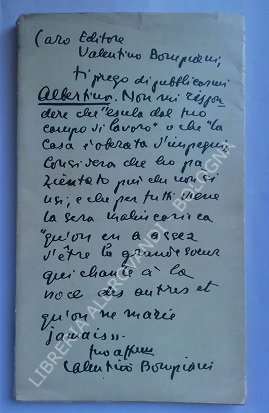 Caro Editore
Valentino Bompiani,
ti prego di pubblicarmi
Albertina. Non mi rispon
dere che "esula dal tuo
campo di lavoro" o che "la
Casa è oberata d'impegni".
Considera che ho pa
zientato più che non si
usi; e che per tutti viene
la sera malinconica
"qu'on en a assez
d'être la grande soeur
qui chante à la
noce des autres et
qu'on ne marie
jamais".
tuo aff.mo
Valentino Bompiani
LIBRERIA ALDROVANDI - BOLOGNA